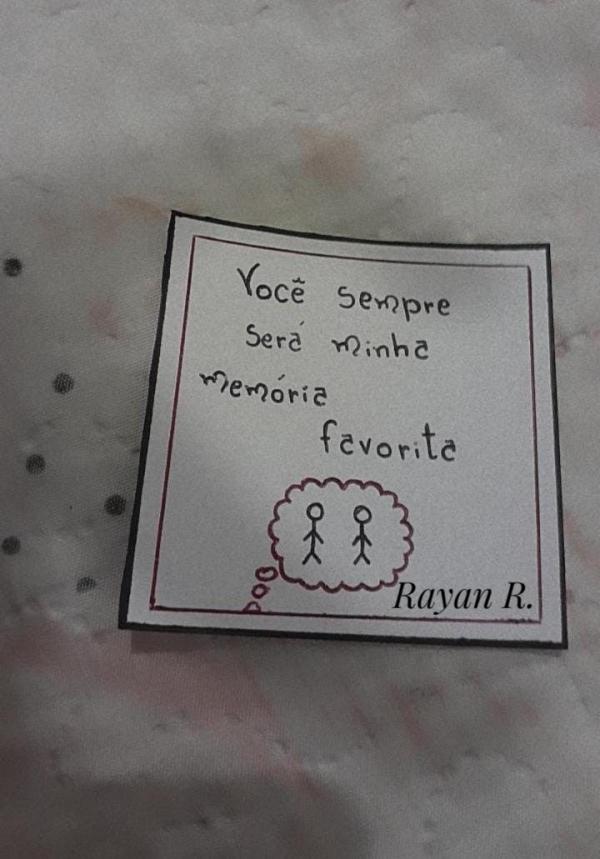 Você sempre
será minha
memória
favorita
Rayan R.